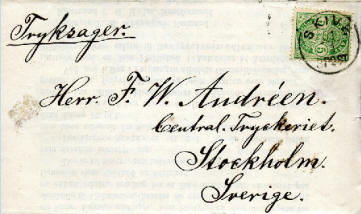 Tryksager.
SKIVE
5
Herr. F. W. Andréen.
Central. Tryckeriet.
Stockholm.
Sverige.